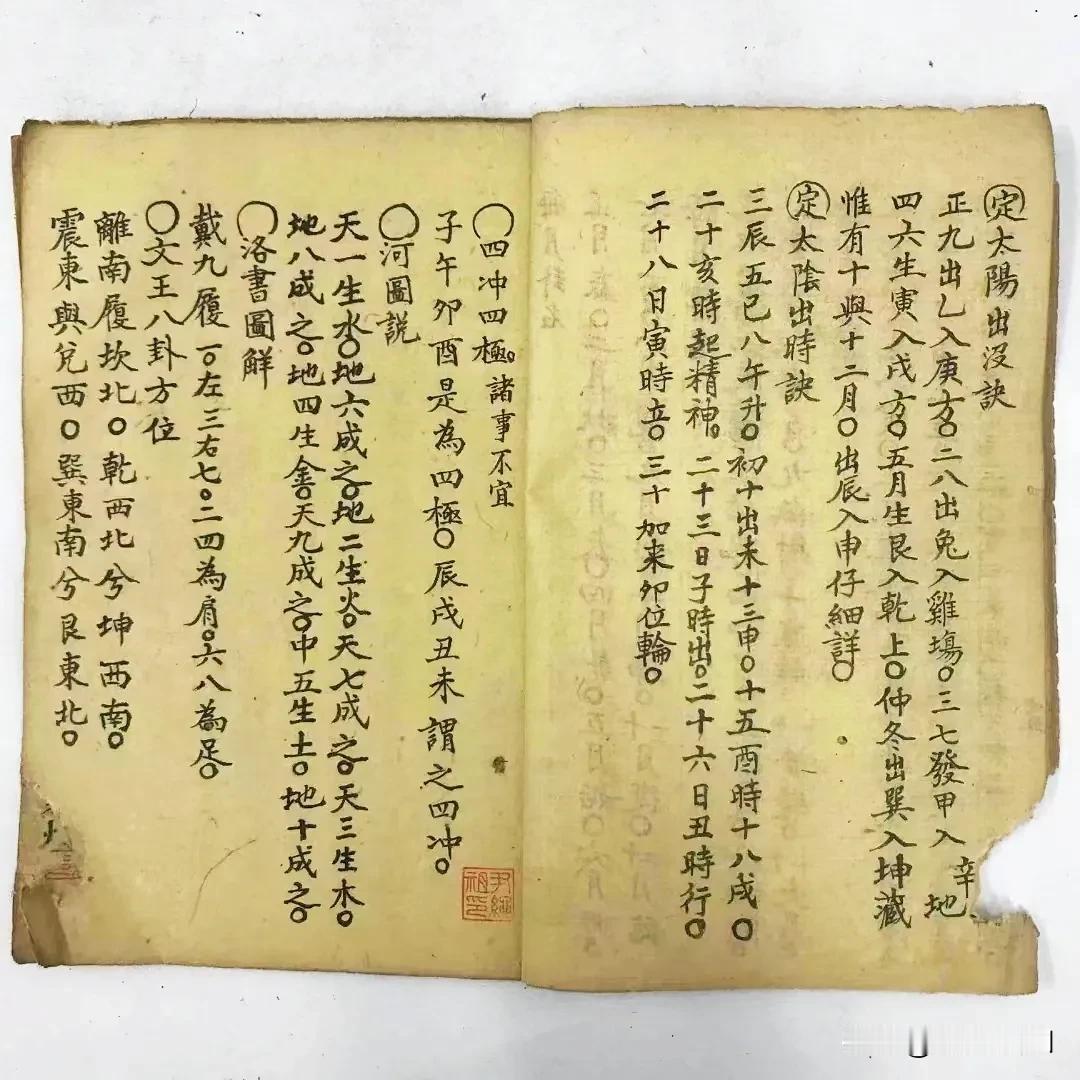 定太陽出沒訣
正九出乙入庚方〇二八出兔入雞塲〇三七發甲入辛地
四六生寅入戌方〇五月生艮入乾上〇仲冬出巽入坤藏
惟有十與十二月〇出辰入申仔細詳〇
定太陰出時訣
三辰五巳八午升〇初十出未十三申〇十五酉時十八戌〇
二十亥時起精神〇二十三日子時出〇二十六日丑時行〇
二十八日寅時立〇三十加来卯位輪〇
〇四冲四極〇諸事不宜
子午卯酉是為四極〇辰戌丑未謂之四冲〇
〇河圖説
天一生水〇地六成之〇地二生火〇天七成之〇天三生木〇
地八成之〇地四生金〇天九成之〇中五生土〇地十成之〇
〇洛書圖解
戴九履一〇左三右七〇二四為肩〇六八為足〇
〇文王八卦方位
離南履坎北〇乾西北兮坤西南〇
震東與兌西〇巽東南兮艮東北〇